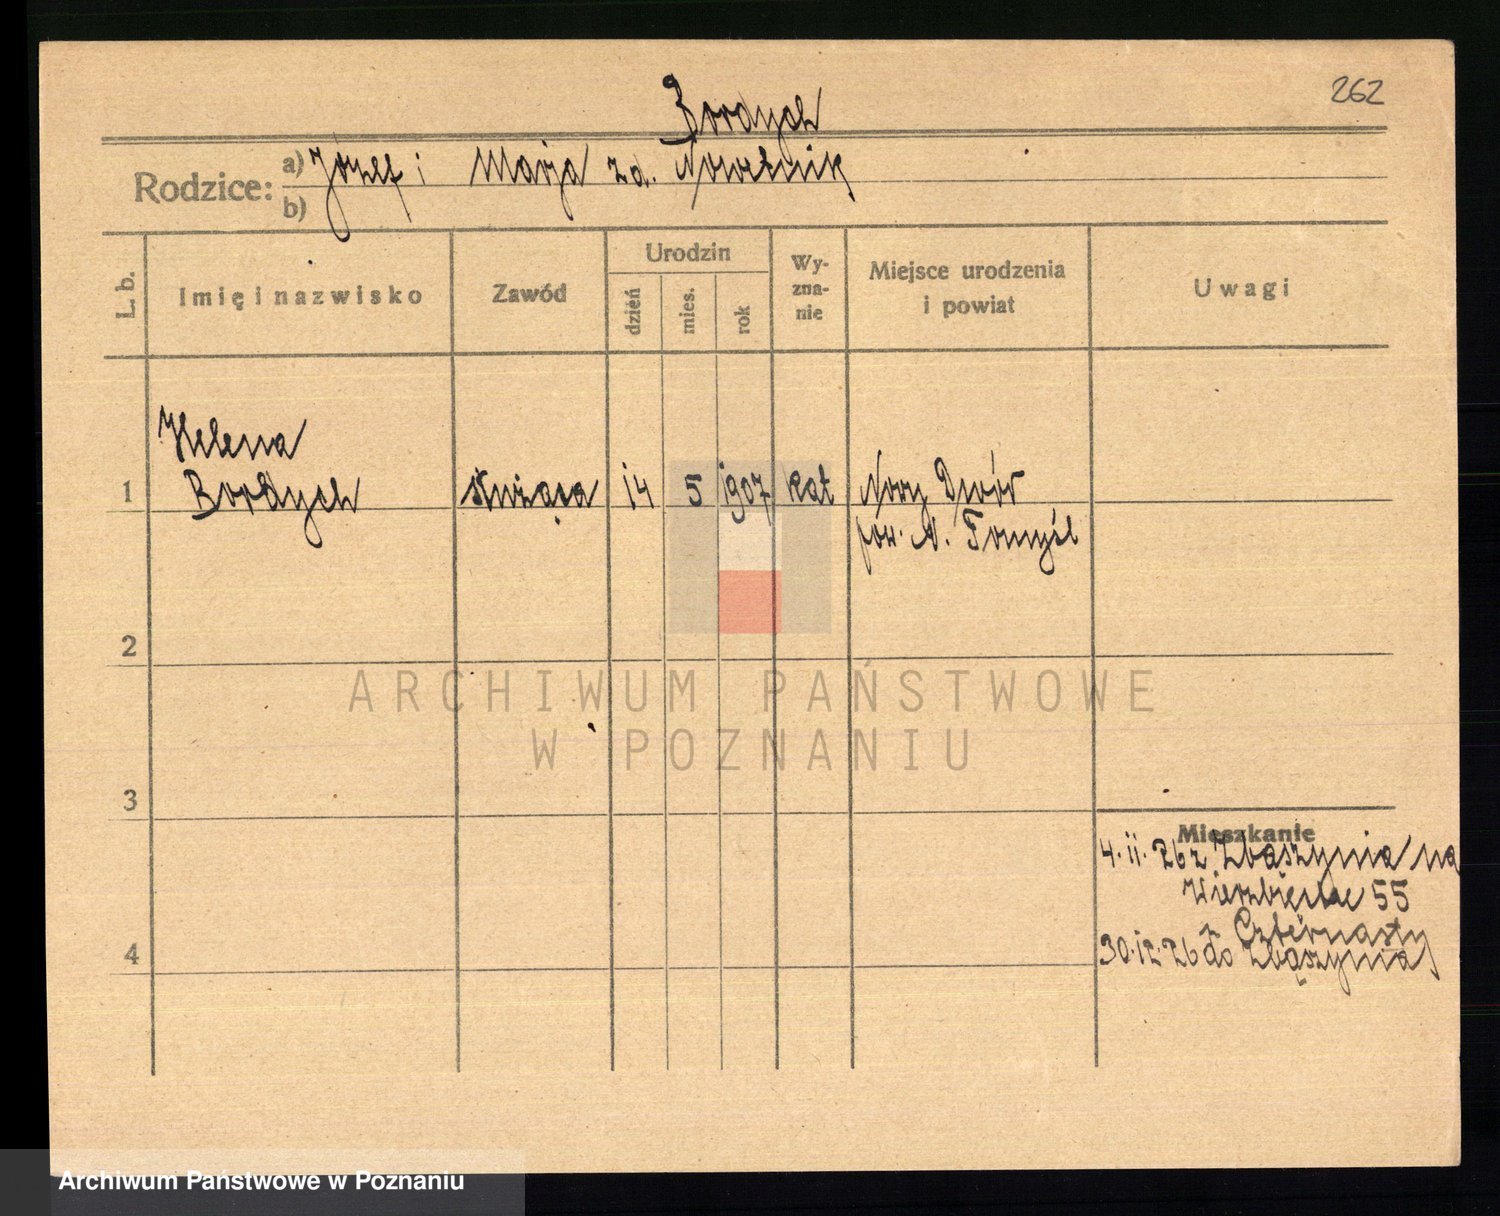 262
Bordych
Rodzice: a) Józef i Marja zd. Nowotnik
b)
L. b.
Imię i nazwisko
Zawód
Urodzin
dzień
mies.
rok
Wy-
zna-
nie
Miejsce urodzenia
i powiat
Uwagi
Helena
1 Bordych służąca 14 5 1907 kat Nowy Dwór
pow. N. Tomyśl
2
3
4
Mieszkanie
4.11.26 z Zbąszynia na
Wierzbięcice 55
z
30.12.26 do Zbąszynia
ARCHIWUM PAŃSTWOWE
W POZNANIU
Archiwum Państwowe w Poznaniu